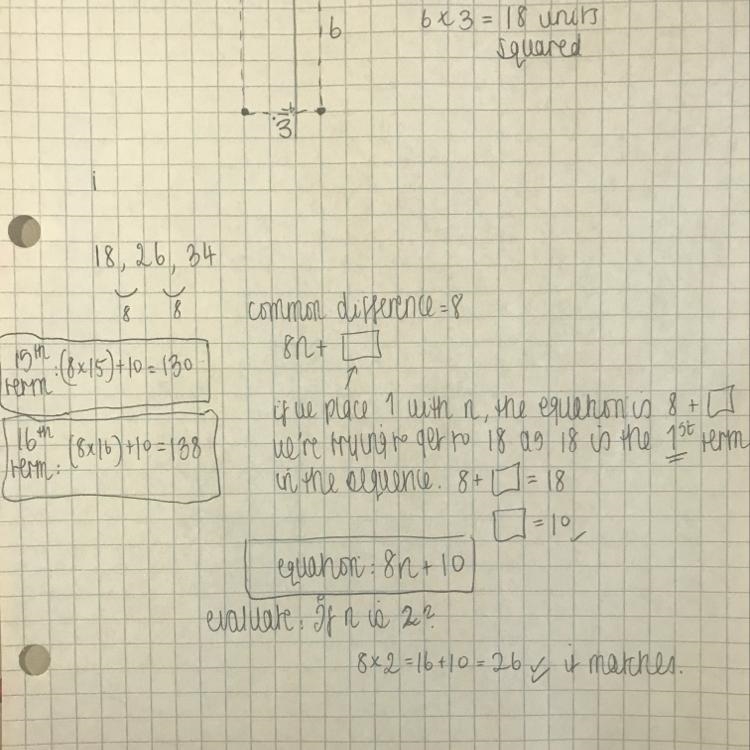 6
6 x 3 = 18 units
squared
3
i
18, 26, 34
8 8
common difference = 8
8n + □
15th term: (8x15)+10=130
16th term: (8x16)+10=138
if we place 1 with n, the equation is 8 + □
we're trying to get to 18 as 18 is the 1st term
in the sequence. 8 + □ = 18
□ = 10 ✓
equation: 8n + 10
evaluate: If n is 2?
8 x 2 = 16 + 10 = 26 ✓ it matches.